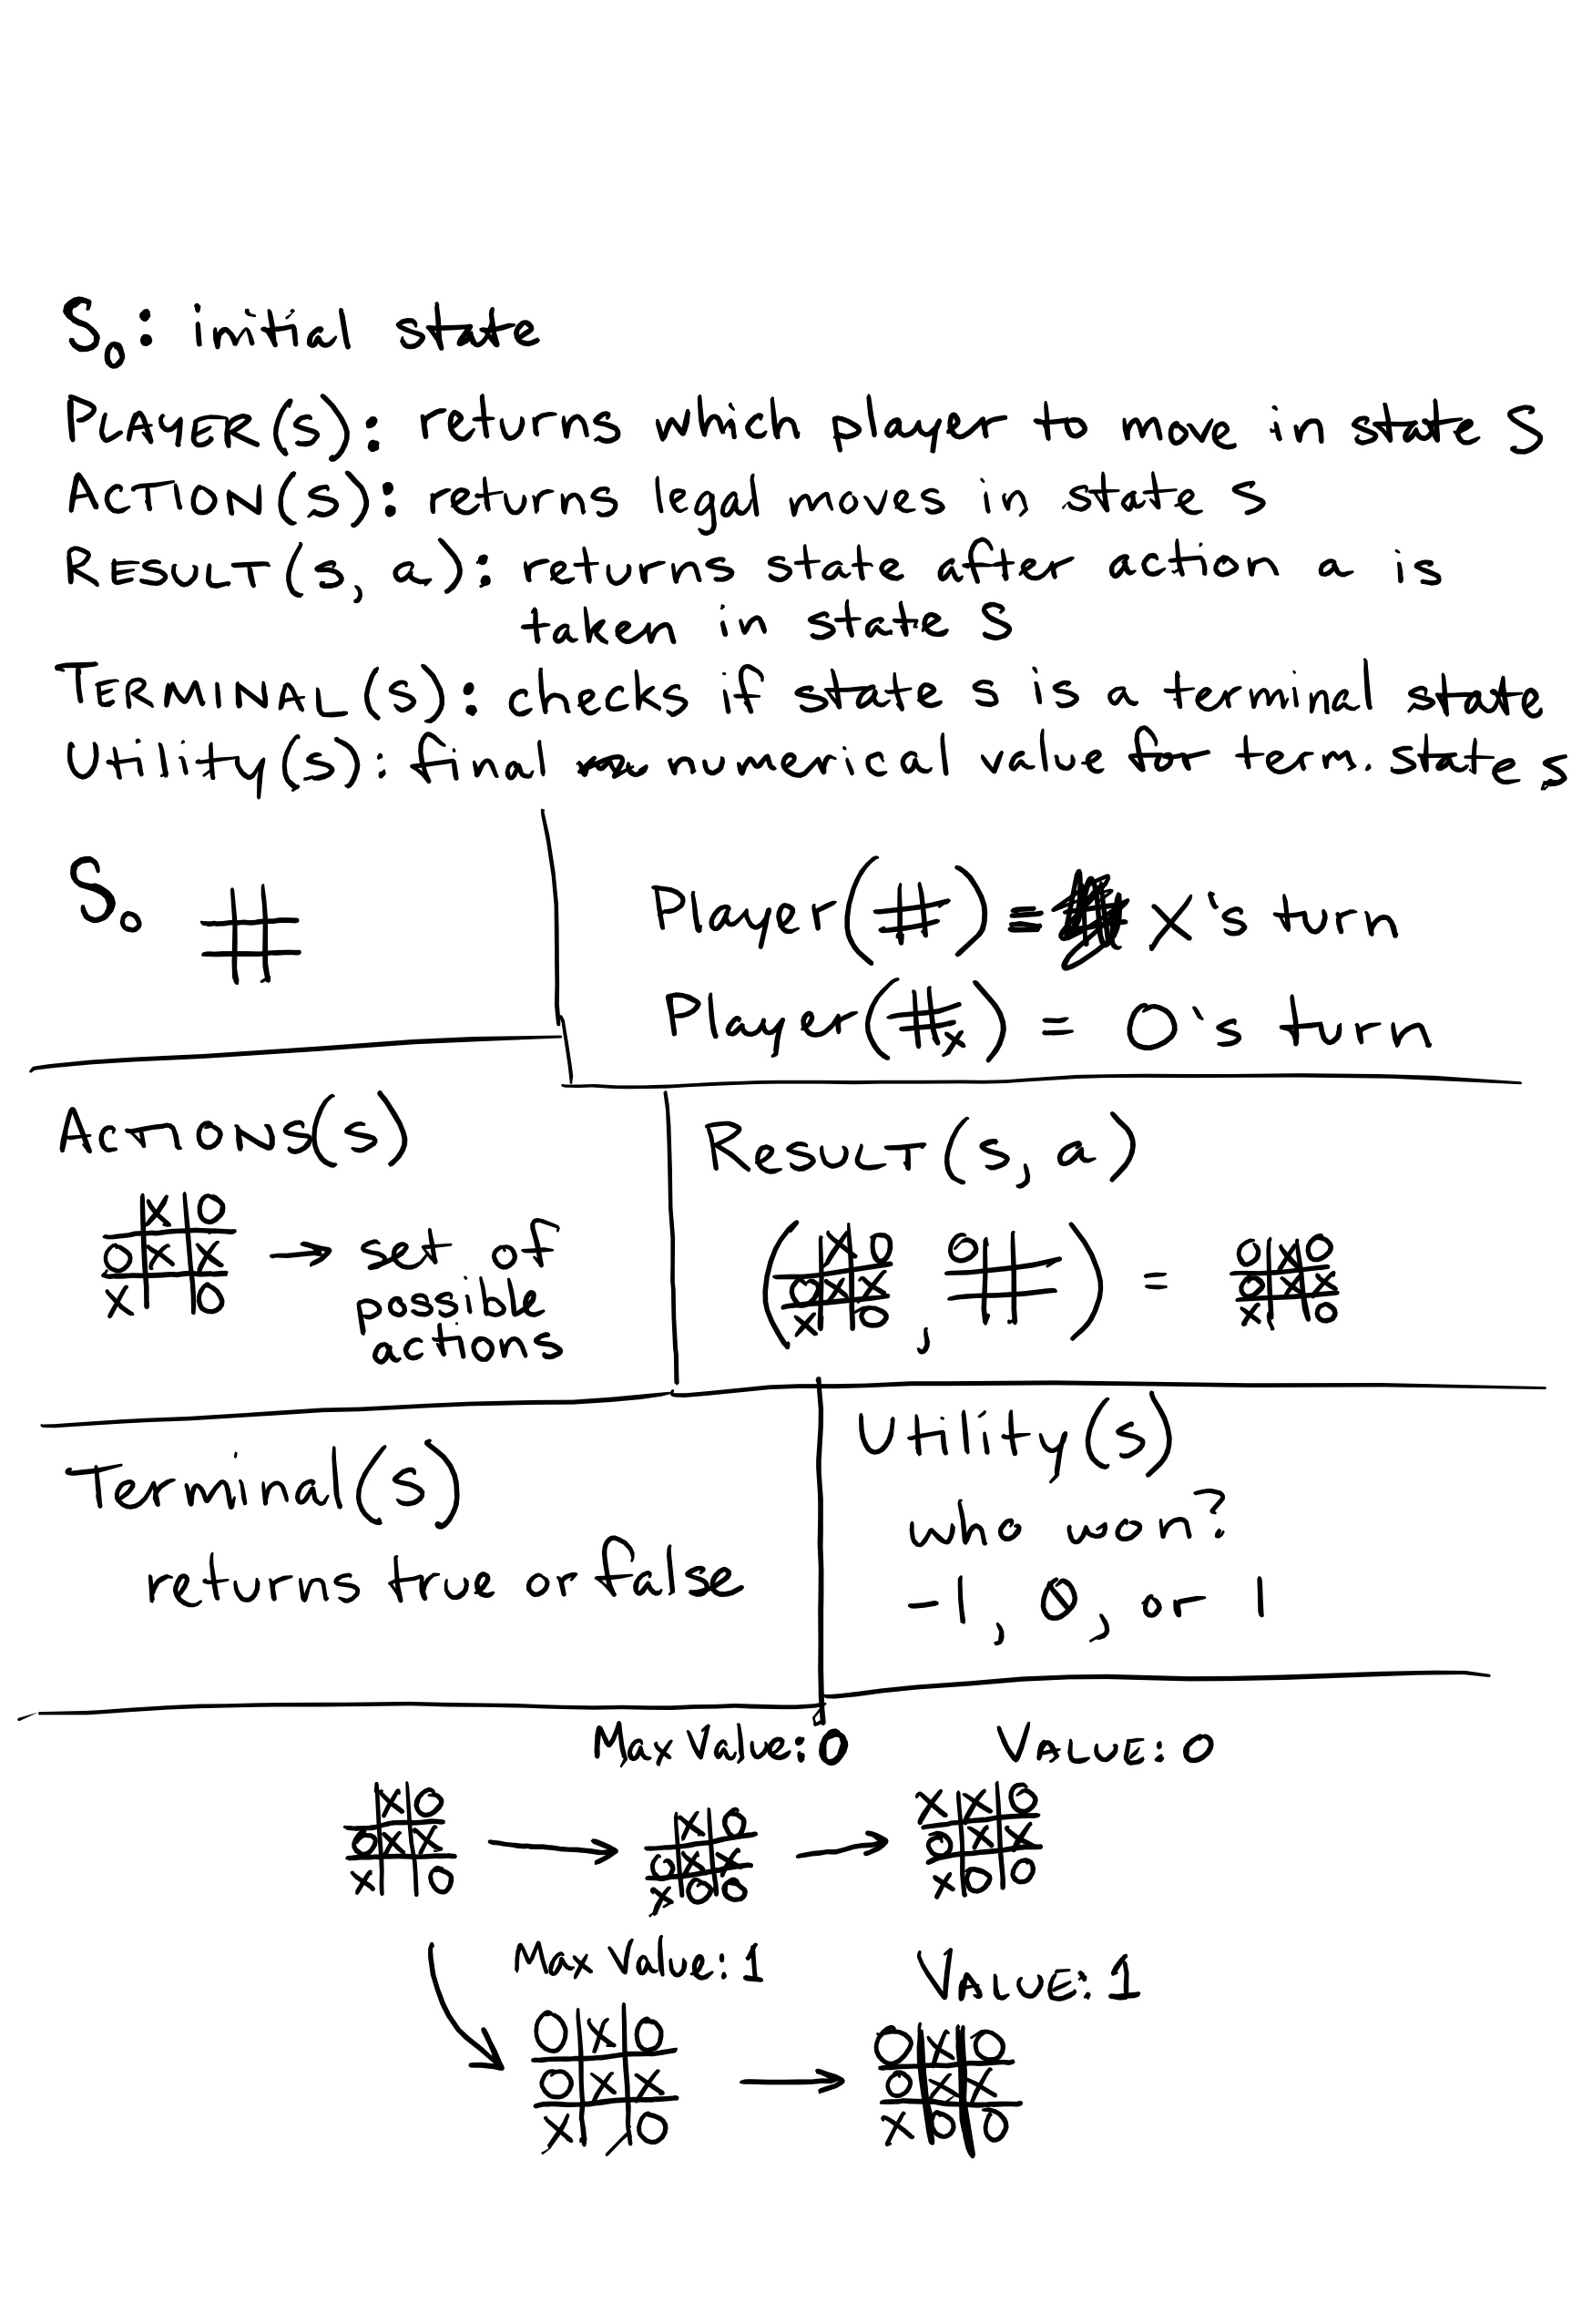 S₀: initial state
PLAYER(s): returns which player to move in state S
ACTION(s): returns legal moves in state S
RESULT(s, a): returns state after action a is
taken in state S
TERMINAL(s): checks if state s is a terminal state
Utility(s): final numerical value for term. state s
S₀
Player(#) = X's turn
Player(#x) = O's turn
ACTIONS(s)
X O
O X X → set of
X O possible
actions
RESULT(s, a)
X O O O X O
O X X , = O X X
X O X O
Terminal(s)
returns true or false
Utility(s)
who won?
-1, 0, or 1
Max Value: 0 VALUE: 0
X O X O X X O
O X X O X X O X X
X O X O O X O O
Max Value: 1 VALUE: 1
O X O O X O
O X X O X X
X O X O O